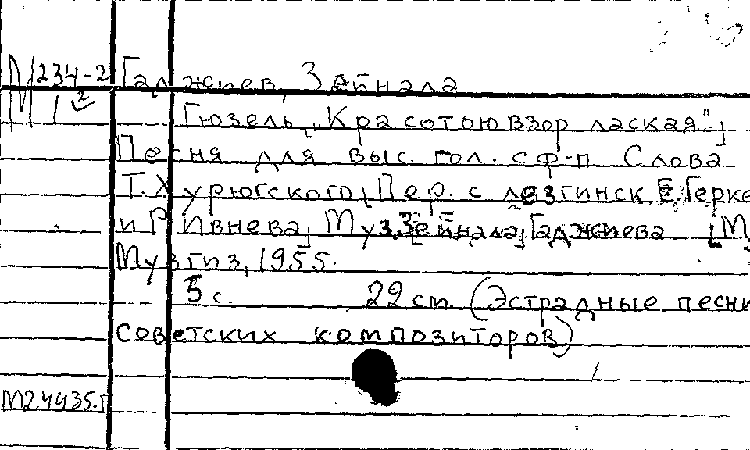 М 234-2 Гаджиев, Зейнала
1 2
Гюзель „Красотою взор лаская"]
Песня для выс. гол. с ф-п Слова
Т. Хурюгского, Пер. с лезгинск Е. Герке
и Р Ивнева, Муз. Зейнала Гаджиева [М,
Музгиз, 1955.
5 с. 22 см. (Эстрадные песни
советских композиторов)
М24435.г